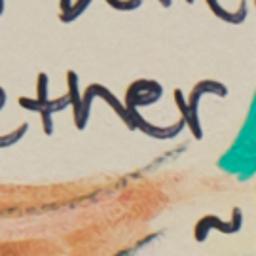 ether
~